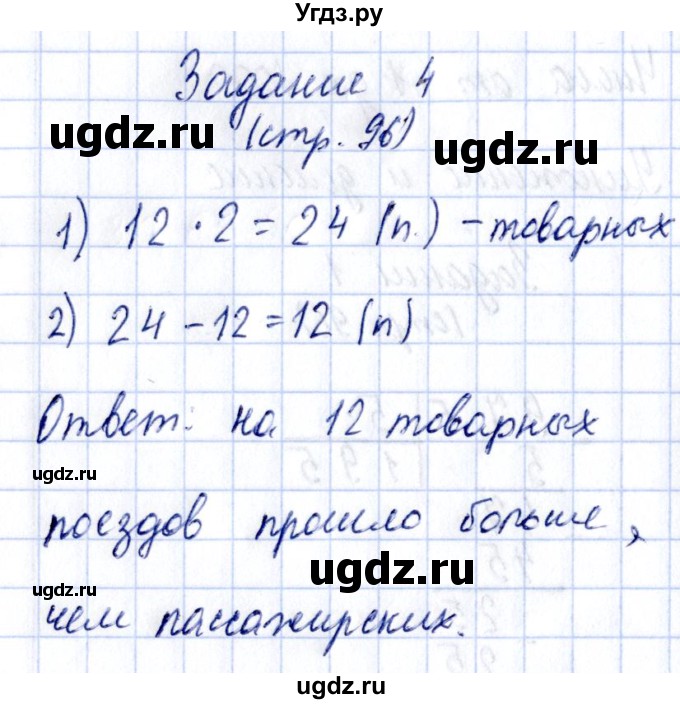 Угдз.ру
Задание 4
ugdz.ru
(стр. 96)
ugdz.ru
1) 12 · 2 = 24 (п.) - товарных
2) 24 - 12 = 12 (п)
Ответ: на 12 товарных
ugdz.ru
поездов прошло больше,
ugdz.ru
ugdz.ru
чем пассажирских.
ugdz.ru